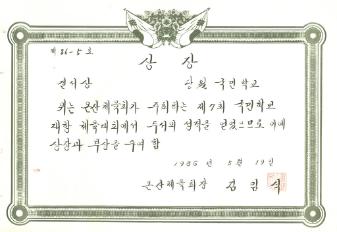 제 86-5 호
상 장
국민학교
위는 온산체육회가 주최하는 제7회 국민학교
대항 체육대회에서 두서의 성적을 얻었으므로 이에
상장과 부상을 수여 함
1986 년 5 월 19 일
온산체육회장 김